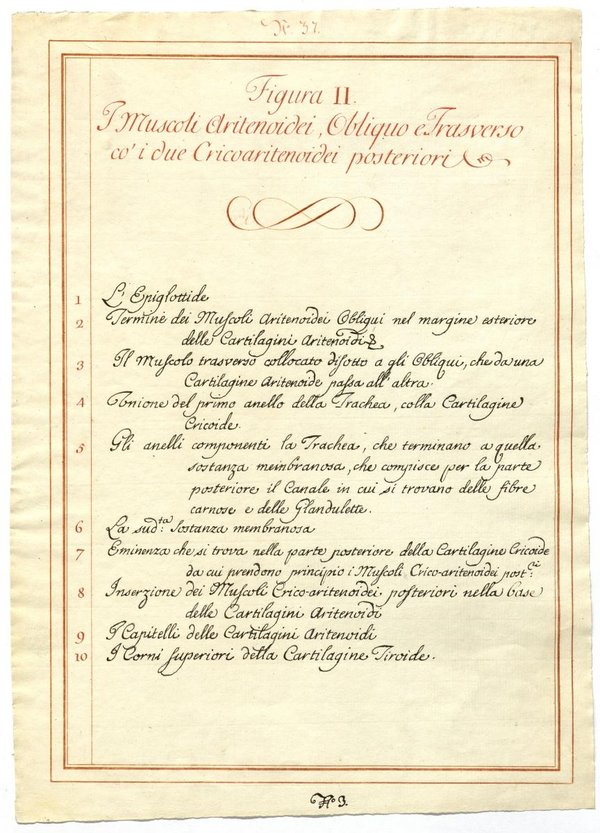 N.º 37.
Figura II.
I Muscoli Aritenoidei, Obliquo e Trasverso
co' i due Cricoaritenoidei posteriori
1 L'Epiglottide
2 Termine dei Muſcoli Aritenoidei Obliqui nel margine esteriore
delle Cartilagini Aritenoidi
3 Il Muſcolo trasverso collocato diſotto a gli Obliqui, che da una
Cartilagine Aritenoide paſsa all'altra.
4 Unione del primo anello della Trachea, colla Cartilagine
Cricoide.
5 Gli anelli componenti la Trachea, che terminano a quella
sostanza membranosa, che compisce per la parte
posteriore il Canale in cui si trovano delle fibre
carnose e delle Glandulette.
6 La sud.ta Sostanza membranosa
7 Eminenza che si trova nella parte posteriore della Cartilagine Cricoide
da cui prendono principio i Muſcoli Crico-aritenoidei post.ri
8 Inserzione dei Muſcoli Crico-aritenoidei posteriori nella base
delle Cartilagini Aritenoidi
9 I Capitelli delle Cartilagini Aritenoidi
10 I Corni ſuperiori della Cartilagine Tiroide.
N.º 3.